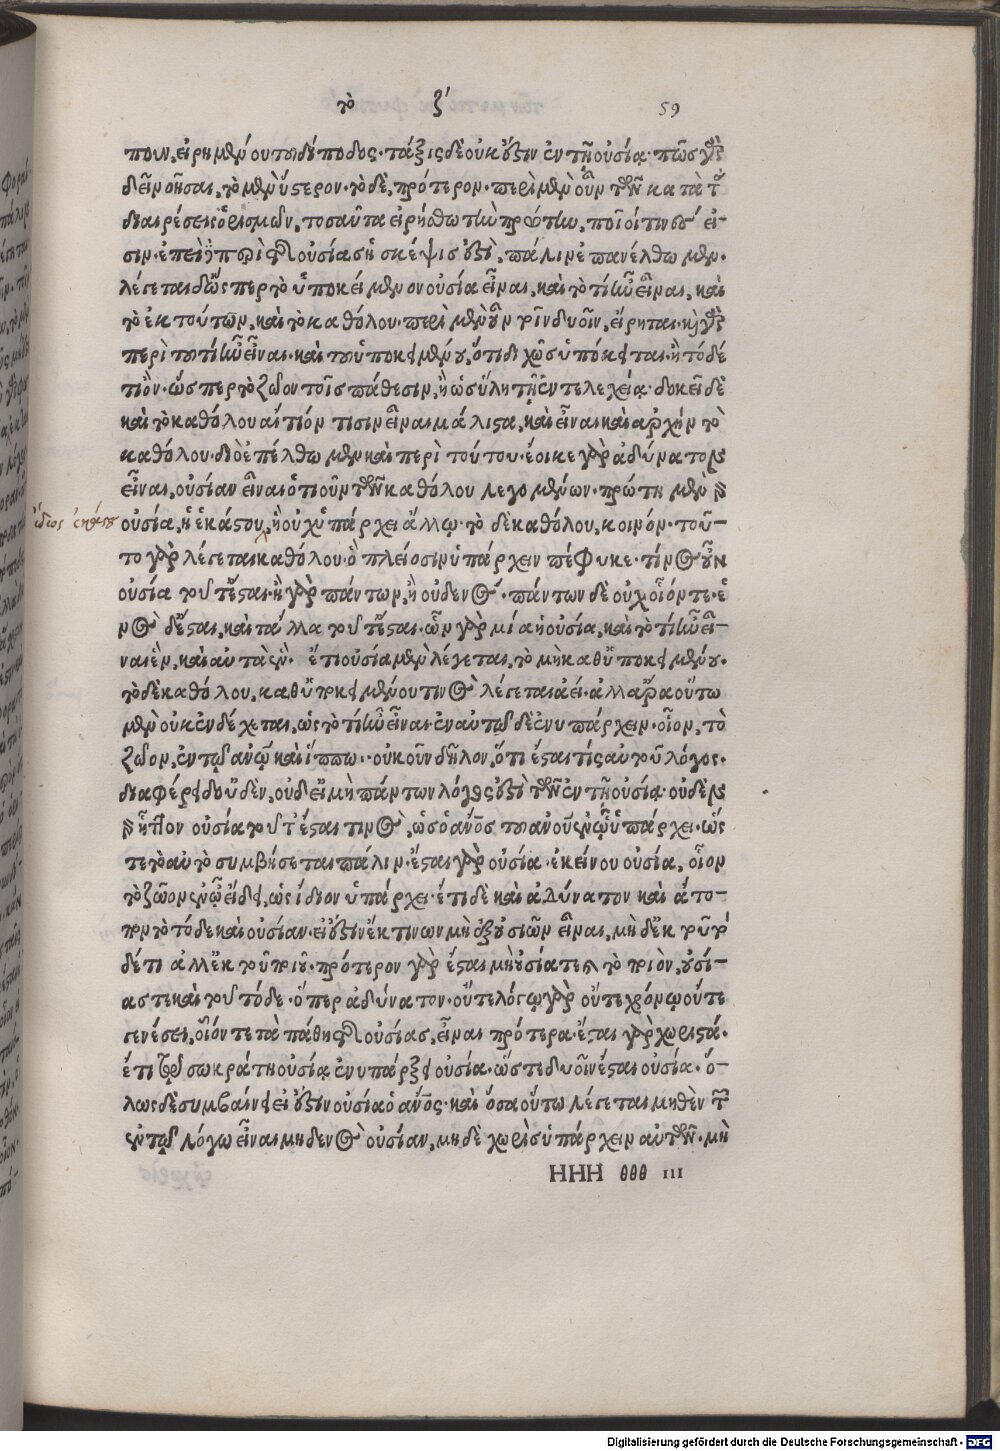 τὸ ζʹ 59
πουν, εἰρημένου τοῦ δίποδος· τάξις δὲ οὐκ ἔστιν ἐν τῇ οὐσίᾳ· πῶς γὰρ
δεῖ νοῆσαι, τὸ μὲν ὕστερον· τὸ δὲ, πρότερον· περὶ μὲν οὖν τῶν κατὰ τὰς
διαιρέσεις ὁρισμῶν, τοσαῦτα εἰρήσθω τὴν πρώτην, ποῖοί τινες εἰ-
σιν· ἐπεὶ δὲ περὶ τῆς οὐσίας ἡ σκέψις ἐστὶ, πάλιν ἐπανέλθωμεν·
λέγεται δ' ὥσπερ τὸ ὑποκείμενον οὐσία εἶναι, καὶ τὸ τί ἦν εἶναι, καὶ
τὸ ἐκ τούτων, καὶ τὸ καθόλου· περὶ μὲν οὖν τοῖν δυοῖν, εἴρηται· καὶ γὰρ
περὶ τοῦ τί ἦν εἶναι· καὶ τοῦ ὑποκειμένου, ὅτι διχῶς ὑπόκειται· ἢ τόδε
τι ὂν· ὥσπερ τὸ ζῶον τοῖς πάθεσιν, ἢ ὡς ὕλη τῇ ἐντελεχείᾳ· δοκεῖ δὲ
καὶ τὸ καθόλου αἴτιόν τισιν εἶναι μάλιστα, καὶ εἶναι καὶ ἀρχὴν τὸ
καθόλου· διὸ ἐπέλθωμεν καὶ περὶ τούτου· ἔοικε γὰρ ἀδύνατον
εἶναι, οὐσίαν εἶναι ὁτιοῦν τῶν καθόλου λεγομένων· πρώτη μὲν γὰρ
οὐσία, ἡ ἑκάστου, ἣ οὐχ ὑπάρχει ἄλλῳ· τὸ δὲ καθόλου, κοινόν· τοῦ-
το γὰρ λέγεται καθόλου· ὃ πλείοσιν ὑπάρχειν πέφυκε· τίνος οὖν
οὐσία τοῦτ' ἔσται· ἢ γὰρ πάντων, ἢ οὐδενός· πάντων δὲ οὐχ οἷόν τε· ἑ-
νὸς δ' ἔσται, καὶ τἆλλα τοῦτ' ἔσται· ὧν γὰρ μία ἡ οὐσία, καὶ τὸ τί ἦν εἶ-
ναι ἓν, καὶ αὐτὰ ἕν· ἔτι οὐσία μὲν λέγεται, τὸ μὴ καθ' ὑποκειμένου·
τὸ δὲ καθόλου, καθ' ὑποκειμένου τινὸς λέγεται ἀεί· ἀλλ' ἆρα οὕτω
μὲν οὐκ ἐνδέχεται, ὡς τὸ τί ἦν εἶναι· ἐν αὐτῷ δὲ ἐνυπάρχειν· οἷον, τὸ
ζῶον, ἐν τῷ ἀνθρώπῳ καὶ ἵππῳ· οὐκοῦν δῆλον, ὅτι ἔσται τίς αὐτοῦ λόγος·
διαφέρει δ' οὐδὲν, οὐδ' εἰ μὴ πάντων λόγος ἐστὶ τῶν ἐν τῇ οὐσίᾳ· οὐδὲν
γὰρ ἧττον οὐσία τοῦτ' ἔσται τινὸς, ὡς ὁ ἄνθρωπος τοῦ ἀνθρώπου ἐν ᾧ ὑπάρχει· ὥς
τε τὸ αὐτὸ συμβήσεται πάλιν· ἔσται γὰρ οὐσία· ἐκείνου οὐσία, οἷον
τὸ ζῶον ἐν ᾧ εἴδει, ὡς ἴδιον ὑπάρχει· ἔτι δὲ καὶ ἀδύνατον καὶ ἄτο-
πον τὸ τόδε καὶ οὐσίαν· εἰ ἔστιν ἔκ τινων μὴ ἐξ οὐσιῶν εἶναι, μὴ δ' ἐκ τοῦ
δέ τι ἀλλ' ἐκ τοῦ ποιοῦ· πρότερον γὰρ ἔσται μὴ οὐσία τε καὶ τὸ ποιὸν, οὐσί-
ας τε καὶ τοῦ τόδε· ὅπερ ἀδύνατον· οὔτε λόγῳ γὰρ οὔτε χρόνῳ οὔτε
γενέσει, οἷόν τε τὰ πάθη τῆς οὐσίας, εἶναι πρότερα· ἔσται γὰρ χωριστά·
ἔτι τῷ σωκράτη οὐσία ἐνυπάρξει οὐσία· ὥστε δυοῖν ἔσται οὐσία· ὅ-
λως δὲ συμβαίνει εἰ ἔστιν οὐσία ὁ ἄνθρωπος· καὶ ὅσα οὕτω λέγεται μηθὲν τῶν
ἐν τῷ λόγῳ εἶναι μηδενὸς οὐσίαν, μηδὲ χωρὶς ὑπάρχειν αὐτῶν· μὴ
HHH θθθ III